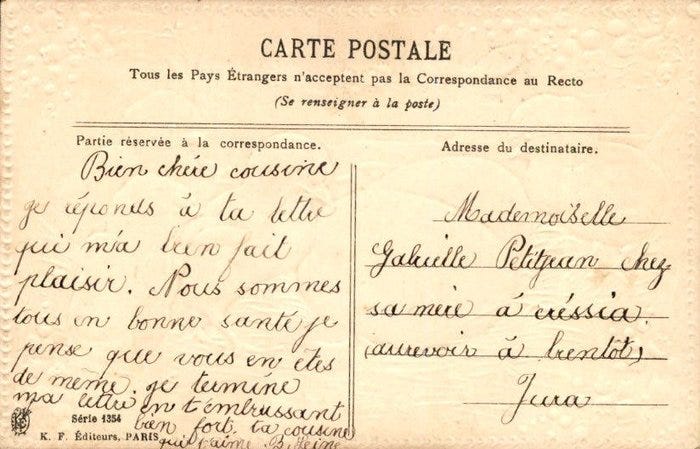 CARTE POSTALE
Tous les Pays Étrangers n'acceptent pas la Correspondance au Recto
(Se renseigner à la poste)
Partie réservée à la correspondance.
Bien chére cousine
je réponds à ta lettre
qui m'a bien fait
plaisir. Nous sommes
tous en bonne santé je
pense que vous en êtes
de même je termine
ma lettre en t'embrassant
bien fort. ta cousine
qui t'aime B.
Série 1354
K. F. Éditeurs, PARIS
Adresse du destinataire.
Mademoiselle
Gabrielle Petitjean chez
sa mère à créssia
(aurevoir à bientot)
Jura